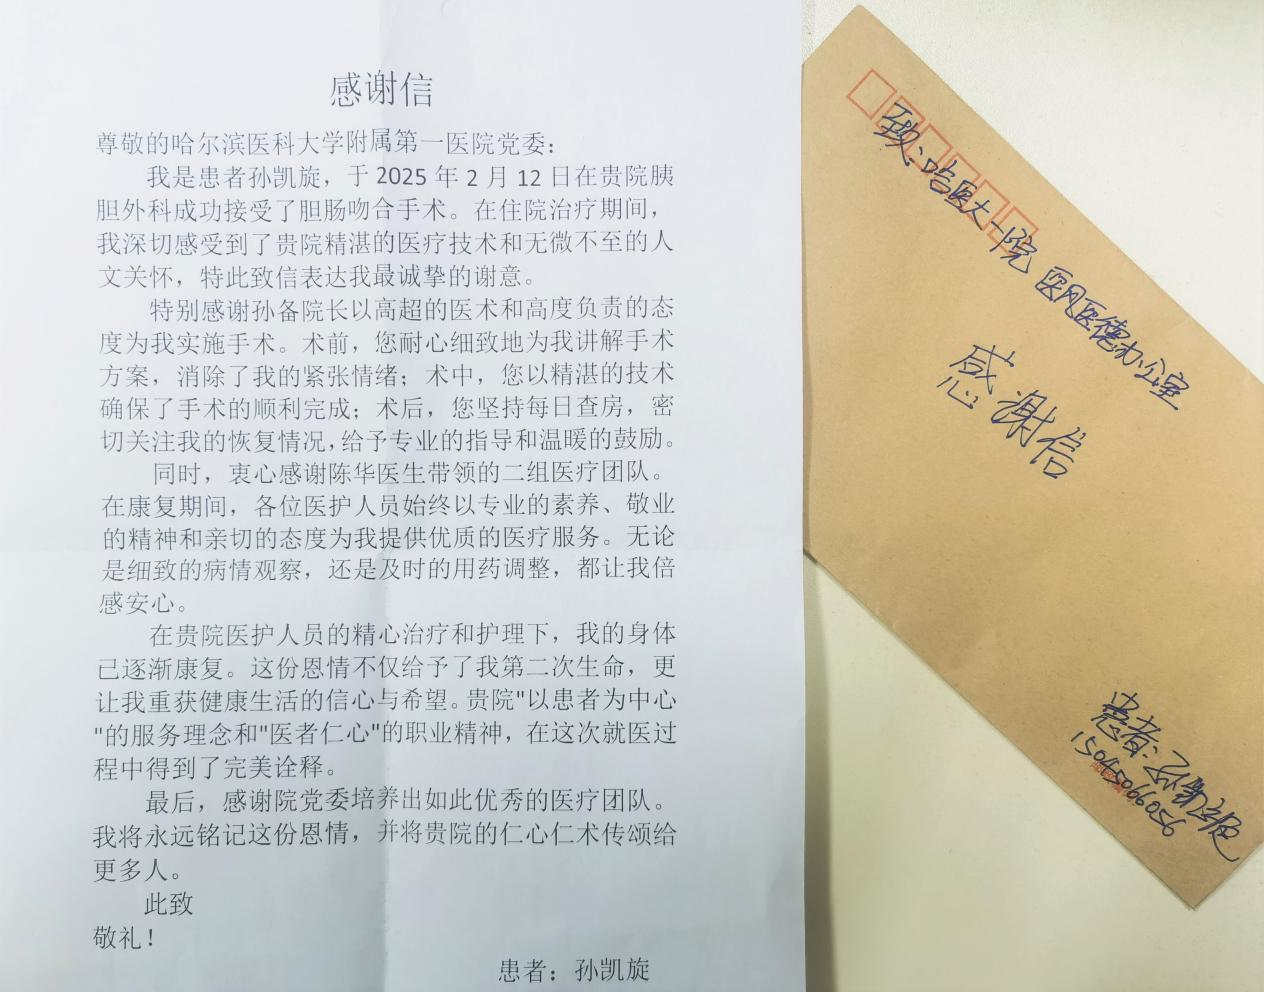 感谢信
尊敬的哈尔滨医科大学附属第一医院党委：
我是患者孙凯旋，于 2025 年 2 月 12 日在贵院胰
胆外科成功接受了胆肠吻合手术。在住院治疗期间，
我深切感受到了贵院精湛的医疗技术和无微不至的人
文关怀，特此致信表达我最诚挚的谢意。
特别感谢孙备院长以高超的医术和高度负责的态
度为我实施手术。术前，您耐心细致地为我讲解手术
方案，消除了我的紧张情绪；术中，您以精湛的技术
确保了手术的顺利完成；术后，您坚持每日查房，密
切关注我的恢复情况，给予专业的指导和温暖的鼓励。
同时，衷心感谢陈华医生带领的二组医疗团队。
在康复期间，各位医护人员始终以专业的素养、敬业
的精神和亲切的态度为我提供优质的医疗服务。无论
是细致的病情观察，还是及时的用药调整，都让我倍
感安心。
在贵院医护人员的精心治疗和护理下，我的身体
已逐渐康复。这份恩情不仅给予了我第二次生命，更
让我重获健康生活的信心与希望。贵院"以患者为中心
"的服务理念和"医者仁心"的职业精神，在这次就医过
程中得到了完美诠释。
最后，感谢院党委培养出如此优秀的医疗团队。
我将永远铭记这份恩情，并将贵院的仁心仁术传颂给
更多人。
此致
敬礼！
患者：孙凯旋
致：哈医大一院 医风医德办公室
感谢信
患者：孙凯旋
15045066056